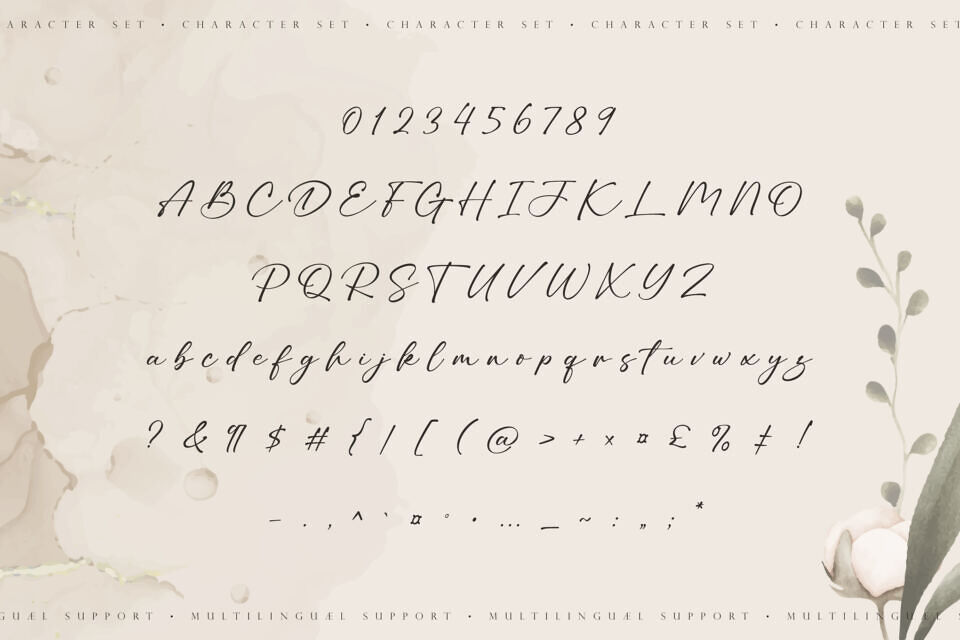 ARACTER SET • CHARACTER SET • CHARACTER SET • CHARACTER SET • CHARACTER SET
0123456789
ABCDEFGHIJKLMNO
PQRSTUVWXYZ
abcdefghijklmnopqrstuvwxyz
? & ¶ $ # { / [ ( @ > + × ¤ £ % ‡ !
– . , ^ ` ¤ ° • … _ ~ : „ ; *
GUÆL SUPPORT • MULTILINGUÆL SUPPORT • MULTILINGUÆL SUPPORT • MULTILINGUÆL S